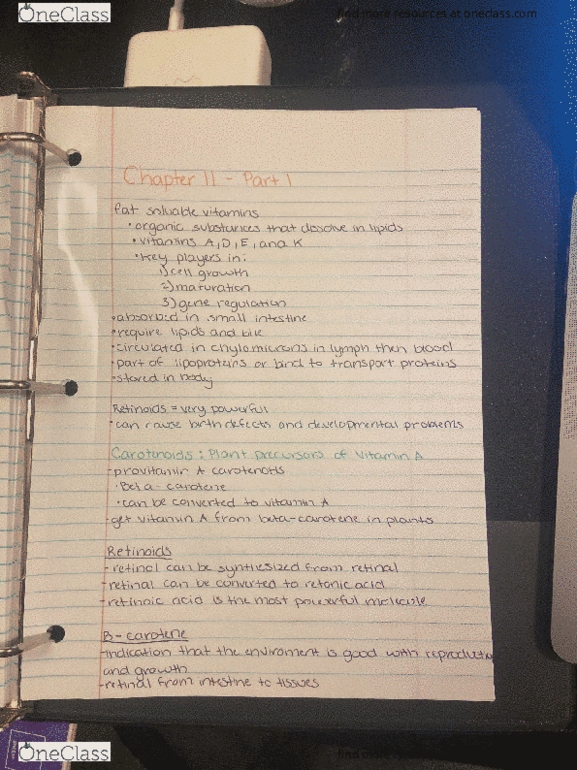 OneClass
find more resources at oneclass.com
Chapter 11 - Part 1
fat soluable vitamins
• organic substances that dissolve in lipids
• vitamins A, D, E, and K
• Key players in:
1) cell growth
2) maturation
3) gene regulation
• absorbed in small intestine
• require lipids and bile
• circulated in chylomicrons in lymph then blood
• part of lipoproteins or bind to transport proteins
• stored in body
Retinoids = very powerful
- can cause birth defects and developmental problems
Carotenoids: Plant precursors of Vitamin A
- provitamin A carotenoids
• Beta-carotene
• can be converted to vitamin A
- get vitamin A from beta-carotene in plants
Retinoids
- retinol can be synthesized from retinal
- retinal can be converted to retonic acid
- retinoic acid is the most powerful molecule
B-carotene
- indication that the enviroment is good with reproductive
and growth
- retinal from intestine to tissues
OneClass
find more resources at oneclass.com